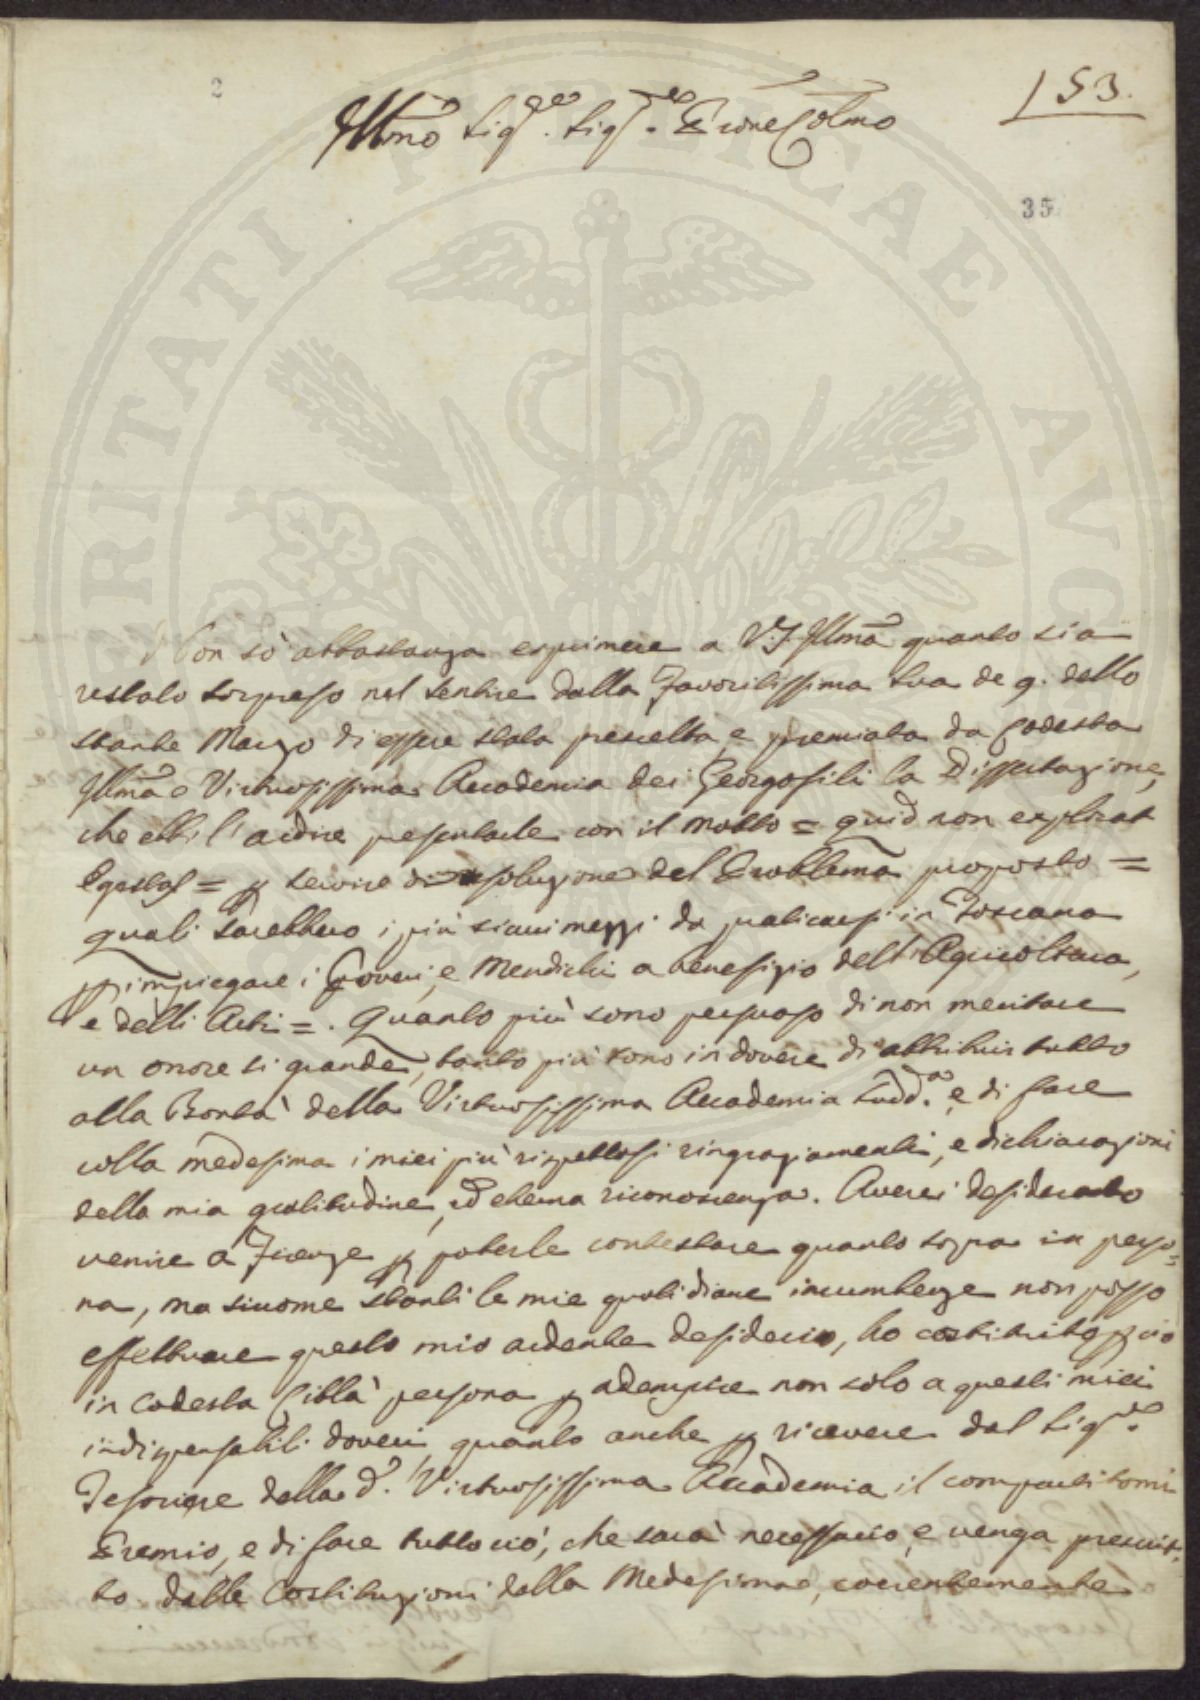 2
153.
Illmo Sigre. Sigre. Prone Colmo
35
Non sò abbastanza esprimere a V.S. Illma quanto sia
restato sorpreso nel sentire dalla Favoritissima sua de 9. dello
stante Marzo di essere stata prescelta, e premiata da codesta
Illma e Virtuosissima Accademia dei Georgofili la Dissertazione,
che ebbi l'ardire presentarle con il motto = quid non explorat
Egestas = p servire di resoluzione del Problema proposto =
quali sarebbero i più sicuri mezzi da praticarsi in Toscana
p impiegare i Poveri, e Mendichi a benefizio dell'Agricoltura,
e delli Arti =. Quanto più sono persuaso di non meritare
un onore si grande, tanto più sono in dovere di attribuir tutto
alla Bontà della Virtuosissima Accademia sudd.a e di fare
colla medesima i miei più rispettosi ringraziamenti, e dichiarazioni
della mia gratitudine, ed eterna riconoscenza. Averei desiderato
venire a Firenze p poterle contestare quanto sopra in perso=
na, ma siccome stanti le mie quotidiane incumbenze non posso
effettuare questo mio ardente desiderio, ho costituito p ciò
in codesta Città persona p adempire non solo a questi miei
indispensabili doveri, quanto anche p ricevere dal Sigre.
Tesoriere della d.a Virtuosissima Accademia il compartitomi
Premio, e di fare tutto ciò, che sarà necessario, e venga prescrit-
to dalle Costituzioni della Medesima, coerentemente